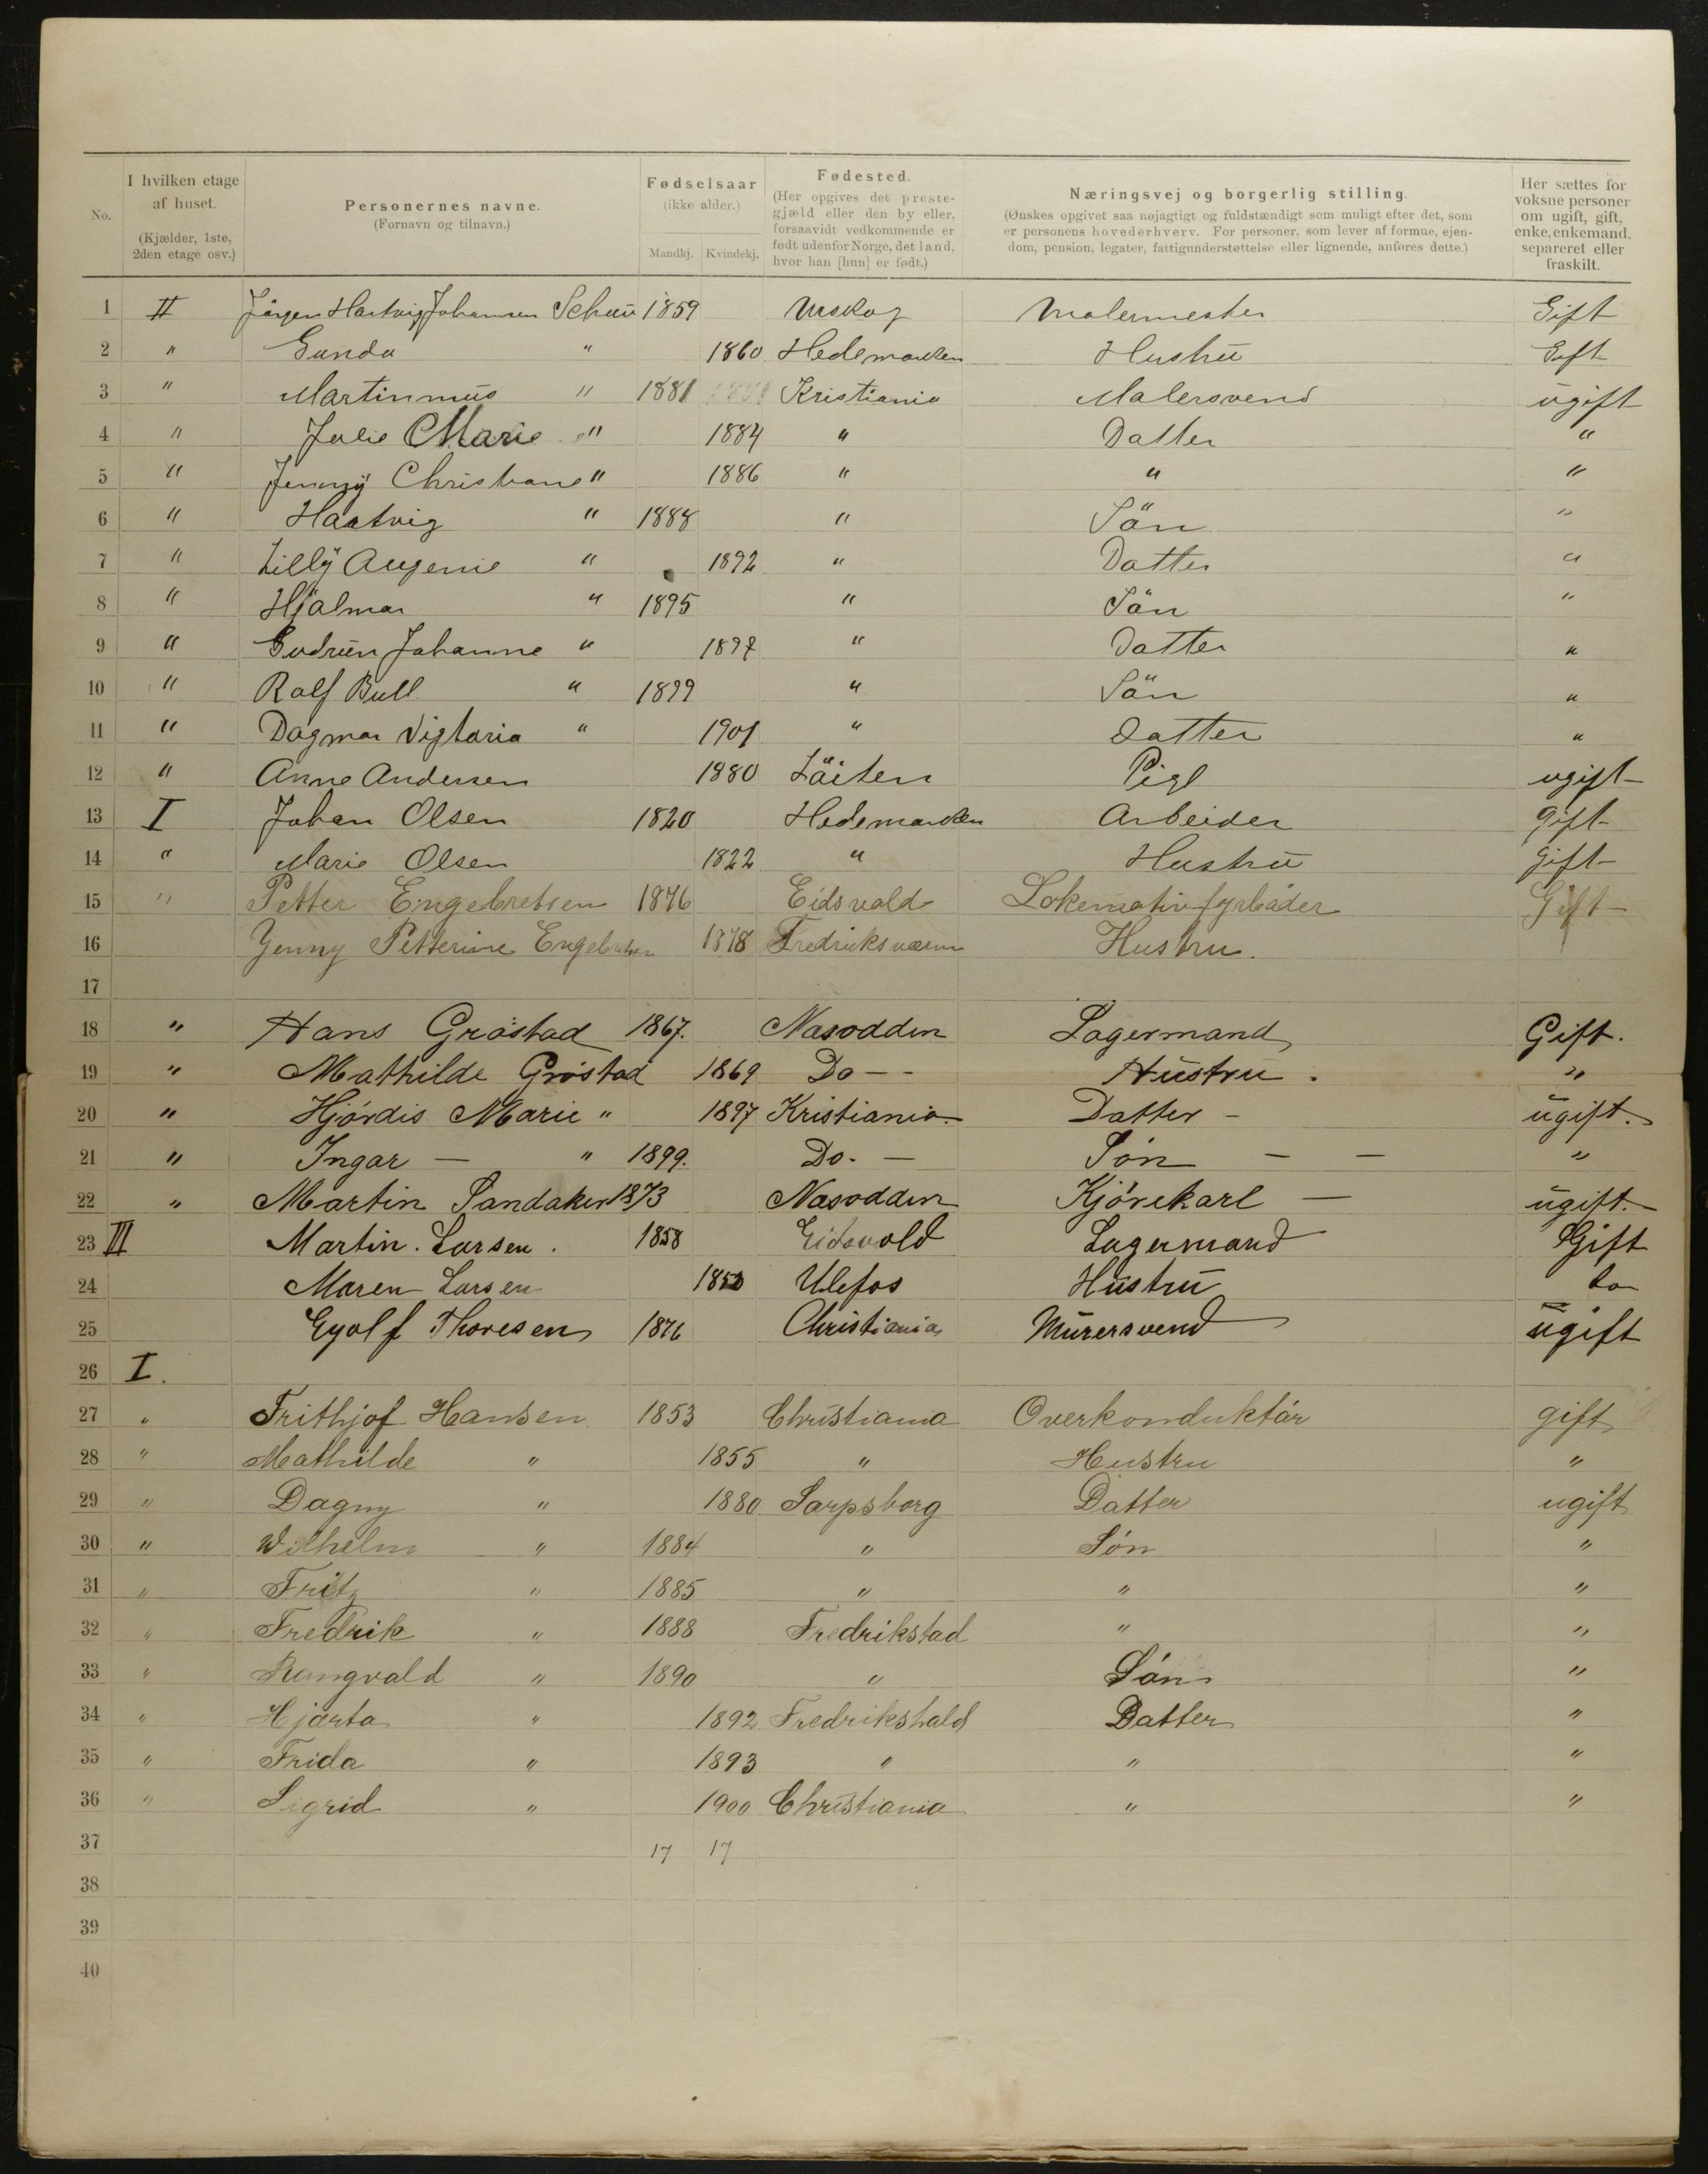 No. I hvilken etage af huset. (Kjælder, 1ste, 2den etage osv.) Personernes navne. (Fornavn og tilnavn.) Fødselsaar (ikke alder.) Mandkj. Kvindekj. Fødested. (Her opgives det prestegjæld eller den by eller, forsaavidt vedkommende er født udenfor Norge, det land, hvor han [hun] er født.) Næringsvej og borgerlig stilling. (Ønskes opgivet saa nøjagtigt og fuldstændigt som muligt efter det, som er personens hovederhverv. For personer, som lever af formue, ejendom, pension, legater, fattigunderstøttelse eller lignende, anføres dette.) Her sættes for voksne personer om ugift, gift, enke, enkemand, separeret eller fraskilt.
1 II Jörgen Hartvig Johansen 1859 Urskog Malermester Gift
2 " Gunda " 1860 Hedemarken Hustru Gift
3 " Martinmus " 1881 Kristiania Malersvend ugift
4 " Julie Marie " 1884 " Datter "
5 " Jenny Christiane " 1886 " " "
6 " Hartvig " 1888 " Sön "
7 " Lilly Augenie " 1892 " Datter "
8 " Hjalmar " 1895 " Sön "
9 " Gudrun Johanne " 1897 " Datter "
10 " Ralf Bull " 1899 " Sön "
11 " Dagmar Vigtoria " 1901 " Datter "
12 " Anne Andersen 1880 Löiten Pige ugift
13 I Johan Olsen 1820 Hedemarken Arbeider gift
14 " Marie Olsen 1822 " Hustru gift
15 " Petter Engebretsen 1876 Eidsvold Lokemotivfyrböder Gift
16 Jenny Petterine Engebretsen 1878 Fredriksværn Hustru.
17
18 " Hans Gröstad 1867. Nasodden Lagermand Gift.
19 " Mathilde Gröstad 1869 Do - - Hustru . "
20 " Hjørdis Marie " 1897 Kristiania Datter - ugift.
21 " Ingar — " 1899. Do. — Søn — — "
22 " Martin Sandaker 1873 Nasodden Kjørekarl — ugift.
23 III Martin . Larsen . 1858 Eidsvold Lagermand Gift
24 Maren Larsen Ulefos Hustru do
25 Eyolf Thoresen 1876 Christiania Murersvend ugift
26 I.
27 " Frithjof Hansen 1853 Christiania Overkonduktör gift
28 " Mathilde " 1855 " Hustru "
29 " Dagny " 1880 Sarpsborg Datter ugift
30 " Wilhelm " 1884 " Søn "
31 " Fritz " 1885 " " "
32 " Fredrik " 1888 Fredrikstad " "
33 " Rangvald " 1890 " Søn "
34 " Hjarta " 1892 Fredrikshald Datter "
35 " Frida " 1893 " " "
36 " Sigrid " 1900 Christiania " "
37 17 17
38
39
40